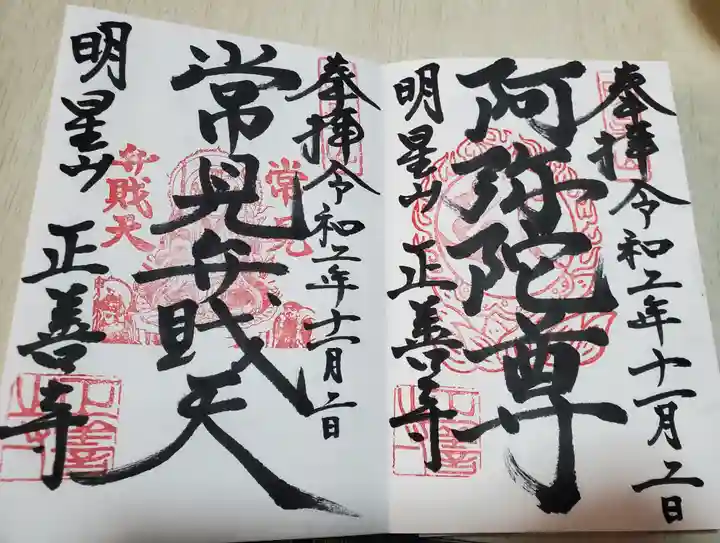 奉拝 令和二年十一月二日
阿弥陀尊
明星山 正善寺
奉拝 令和二年十一月二日
常見
常見弁財天
弁財天
明星山 正善寺